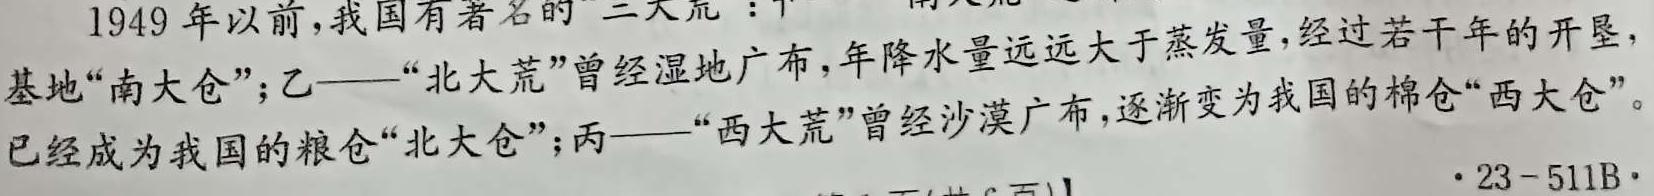 1949年以前,我国有著名的“三大荒”:
基地“南大仓”;乙——“北大荒”曾经湿地广布,年降水量远远大于蒸发量,经过若干年的开垦,
已经成为我国的粮仓“北大仓”;丙——“西大荒”曾经沙漠广布,逐渐变为我国的棉仓“西大仓”。
·23-511B·